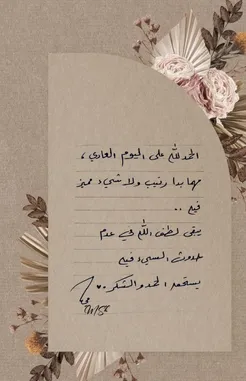 الحمد لله على اليوم العادي،
مهما بدا رتيب ولا شيء مميز
فيه ..
يبقى لطف الله في عدم
حدوث السيء فيه
يستحق الحمد والشكر.